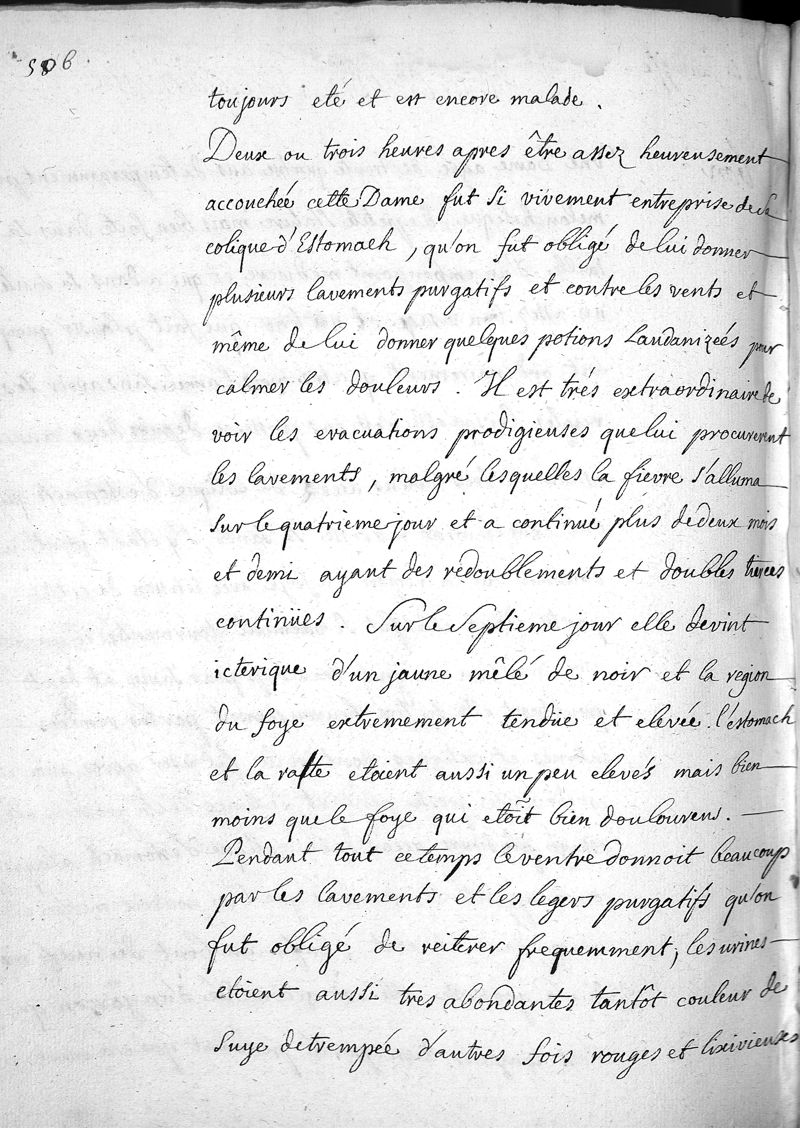 506.
toujours eté et est encore malade.
Deux ou trois heures apres être assez heureusement
accouchée cette Dame fut si vivement entreprise de la
colique d'Estomach, qu'on fut obligé de lui donner
plusieurs lavements purgatifs et contre les vents et
même de lui donner quelques potions Laudanizeés pour
calmer les douleurs. Il est trés extraordinaire de
voir les evacuations prodigieuses que lui procurerent
les lavements, malgré lesquelles la fievre s'alluma
sur le quatrieme jour et a continué plus de deux mois
et demi ayant des redoublements et doubles tierces
continües. Sur le Septieme jour elle devint
icterique d'un jaune mêlé de noir et la region
du foye extremement tendüe et elevée. l'estomach
et la ratte etoient aussi un peu elevés mais bien
moins que le foye qui etoit bien douloureus.
Pendant tout ce temps le ventre donnoit beaucoup
par les lavements et les legers purgatifs qu'on
fut obligé de reiterer frequemment, les urines
etoient aussi tres abondantes tantôt couleur de
suye detrempée d'autres fois rouges et lixivieuses